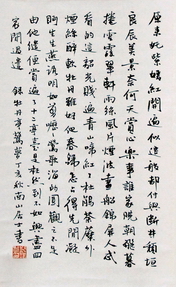 原来姹紫嫣紅開遍似這般都付與断井頹垣
良辰美景奈何天賞心樂事誰家院朝飛暮
捲雲霞翠軒雨絲風片煙波畫船錦屏人忒
看的這韶光賤遍青山啼紅了杜鵑荼蘼外
煙絲醉軟牡丹雖好他春歸怎占得先閑凝
眄生生燕語明如剪嚦嚦鶯歌溜的圓觀之不足
由他繾便賞遍了十二亭臺是枉然到不如興盡回
家閑過遣 錄牡丹亭 丁亥秋南山居士書